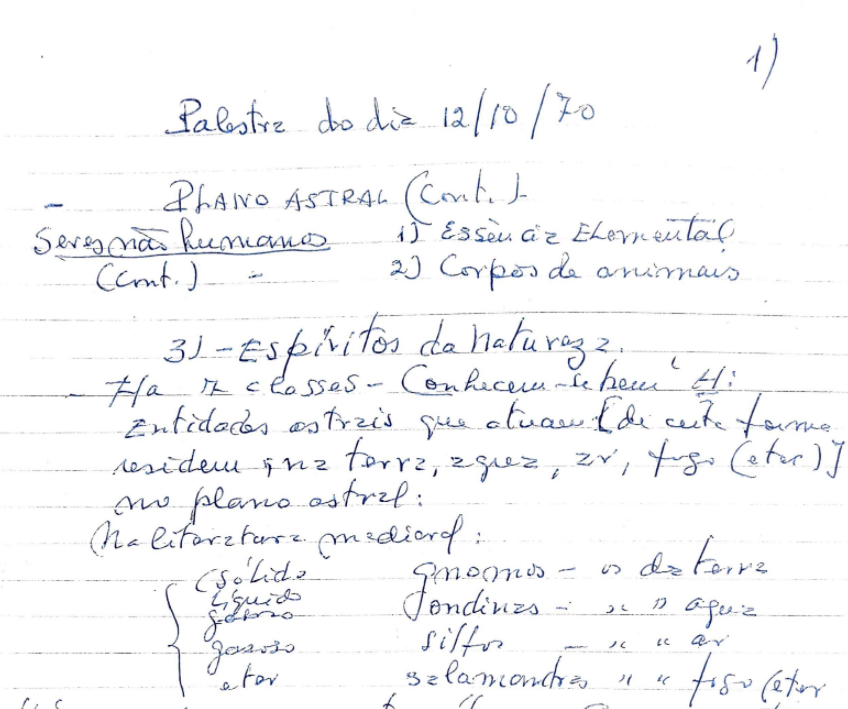 1)
Palestra do dia 12/10/70
- PLANO ASTRAL (Cont.)-
Seres não humanos 1) Essência Elemental
(Cont.) - 2) Corpos de animais
3) - Espíritos da natureza.
- Ha 7 classes - Conhecem-se bem 4:
Entidades astrais que atuam [de certa forma
residem na terra, agua, ar, fogo (eter)]
no plano astral:
Na literatura medieval:
(sólido gnomos - os da terra
líquido ondinas - " " agua
gasoso silfos - " " ar
eter salamandras " " fogo (eter